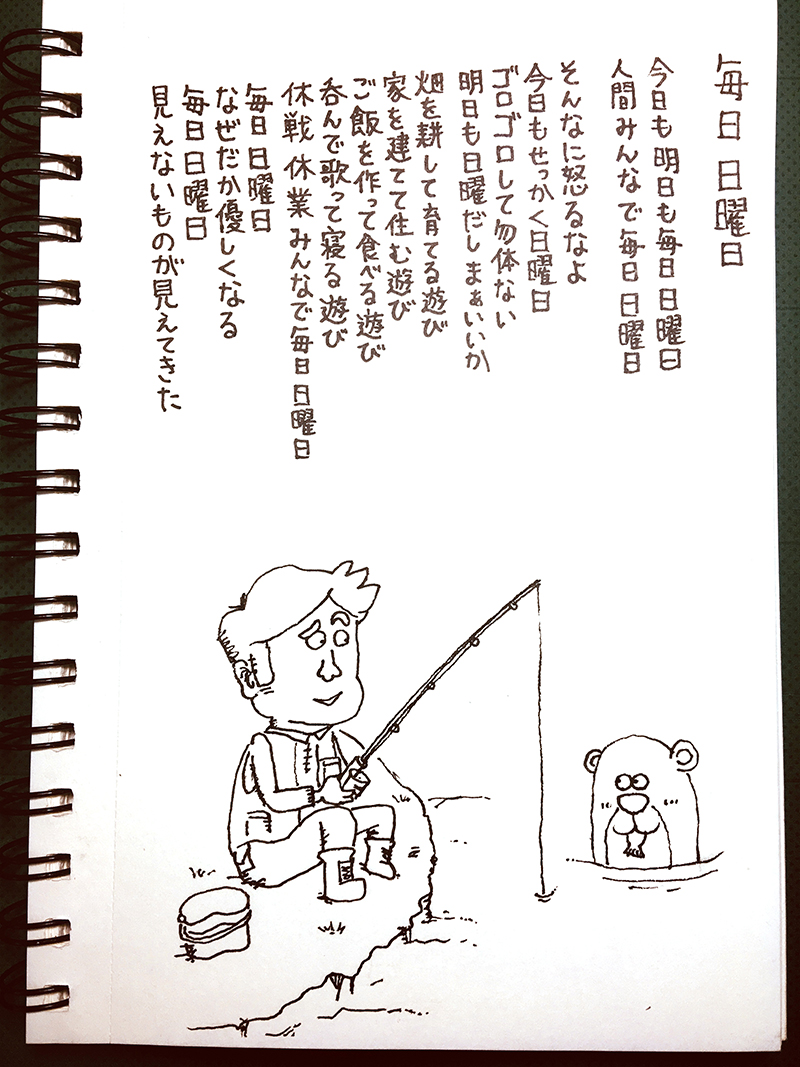 毎日日曜日
今日も明日も毎日日曜日
人間みんなで毎日日曜日
そんなに怒るなよ
今日もせっかく日曜日
ゴロゴロして勿体ない
明日も日曜だしまぁいいか
畑を耕して育てる遊び
家を建てて住む遊び
ご飯を作って食べる遊び
呑んで歌って寝る遊び
休戦休業みんなで毎日日曜日
毎日日曜日
なぜだか優しくなる
毎日日曜日
見えないものが見えてきた